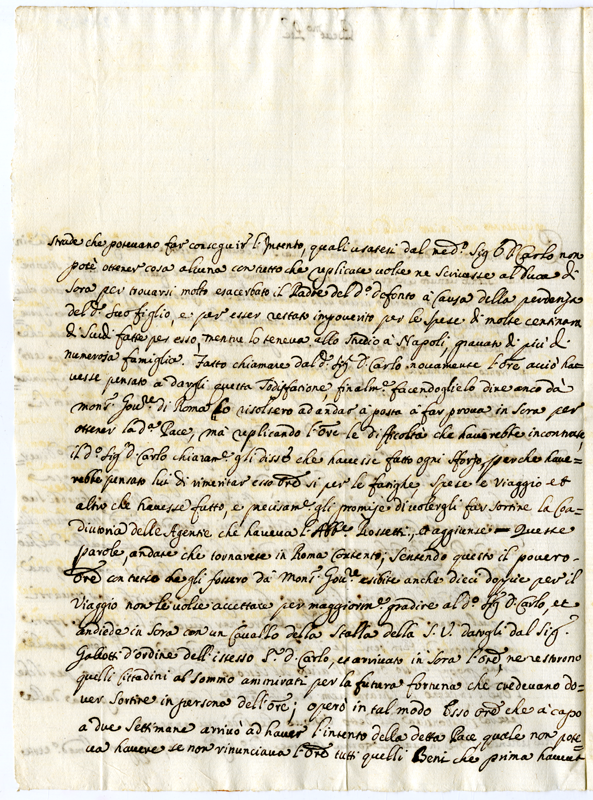 strade che potevano far conseguir l'Intento, quali usatesi dal med.º Sig.r D. Carlo non
potè ottener cosa alcuna con tutto che replicate volte ne scrivesse al Duca di
Sora per trovarsi molto esacerbato il Padre del d.º defonto à causa della perdenza
del d.º suo figlio, e per esser restato impoverito per le spese di molte centinara
di Scudi fatte per esso, mentre lo teneva allo Studio à Napoli, gravato di più di
numerosa famiglia. Fatto chiamare dal d.º Sig.r D. Carlo novamente l'Ore acciò ha=
vesse pensato a dargli questa sodisfazione, finalm.e facendoglielo dire anco dà
mons.r Gov.re di Roma lo risolsero ad andar a posta à far prova in Sora per
ottener la d.ª Pace, mà replicando l'Ore le difficoltà che haverebbe incontrate,
il d.º Sig.r D. Carlo chiaram.e gli disse che havesse fatto ogni sforzo, perche have=
rebbe pensato lui di rimeritar esso Ore si per le fatighe spese e Viaggio et
altro che havesse fatto, e precisam.e gli promise di volergli far sortire la Coa=
diutoria delle Agenzie che haveva l'Abb.e Rossetti, et aggiunse Queste
parole, andate che tornarete in Roma Contento; Sentendo questo il povero
Ore con tutto che gli fossero da Mons.r Gov.re esibite anche dieci doppie per il
Viaggio non le volse accettare per maggiorm.e gradire al d.º Sig.r D. Carlo, et
andiede in Sora con un Cavallo della Stalla della S. V. datogli dal Sig.r
Gallotti d'ordine dell'istesso S.r D. Carlo, et arrivato in Sora l'Ore, ne restorono
quelli Cittadini al sommo ammirati per la futura fortuna che credevano do=
ver sortire in persona dell'Ore; operò in tal modo Esso Ore che à capo
a due settimane arrivò ad haver l'intento della detta Pace quale non pote=
va havere se non rinunciava l'Ore tutti quelli Beni che prima haveva